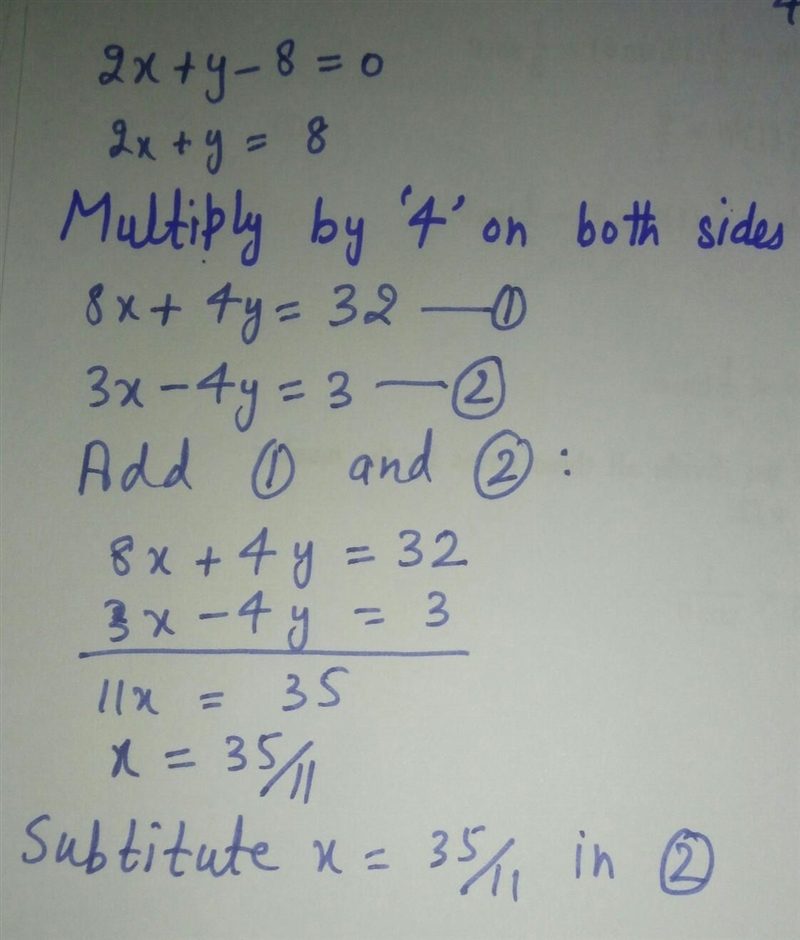 2x + y - 8 = 0
2x + y = 8
Multiply by '4' on both sides
8x + 4y = 32 —①
3x - 4y = 3 —②
Add ① and ② :
8x + 4y = 32
3x - 4y = 3
11x = 35
x = 35/11
Subtitute x = 35/11 in ②